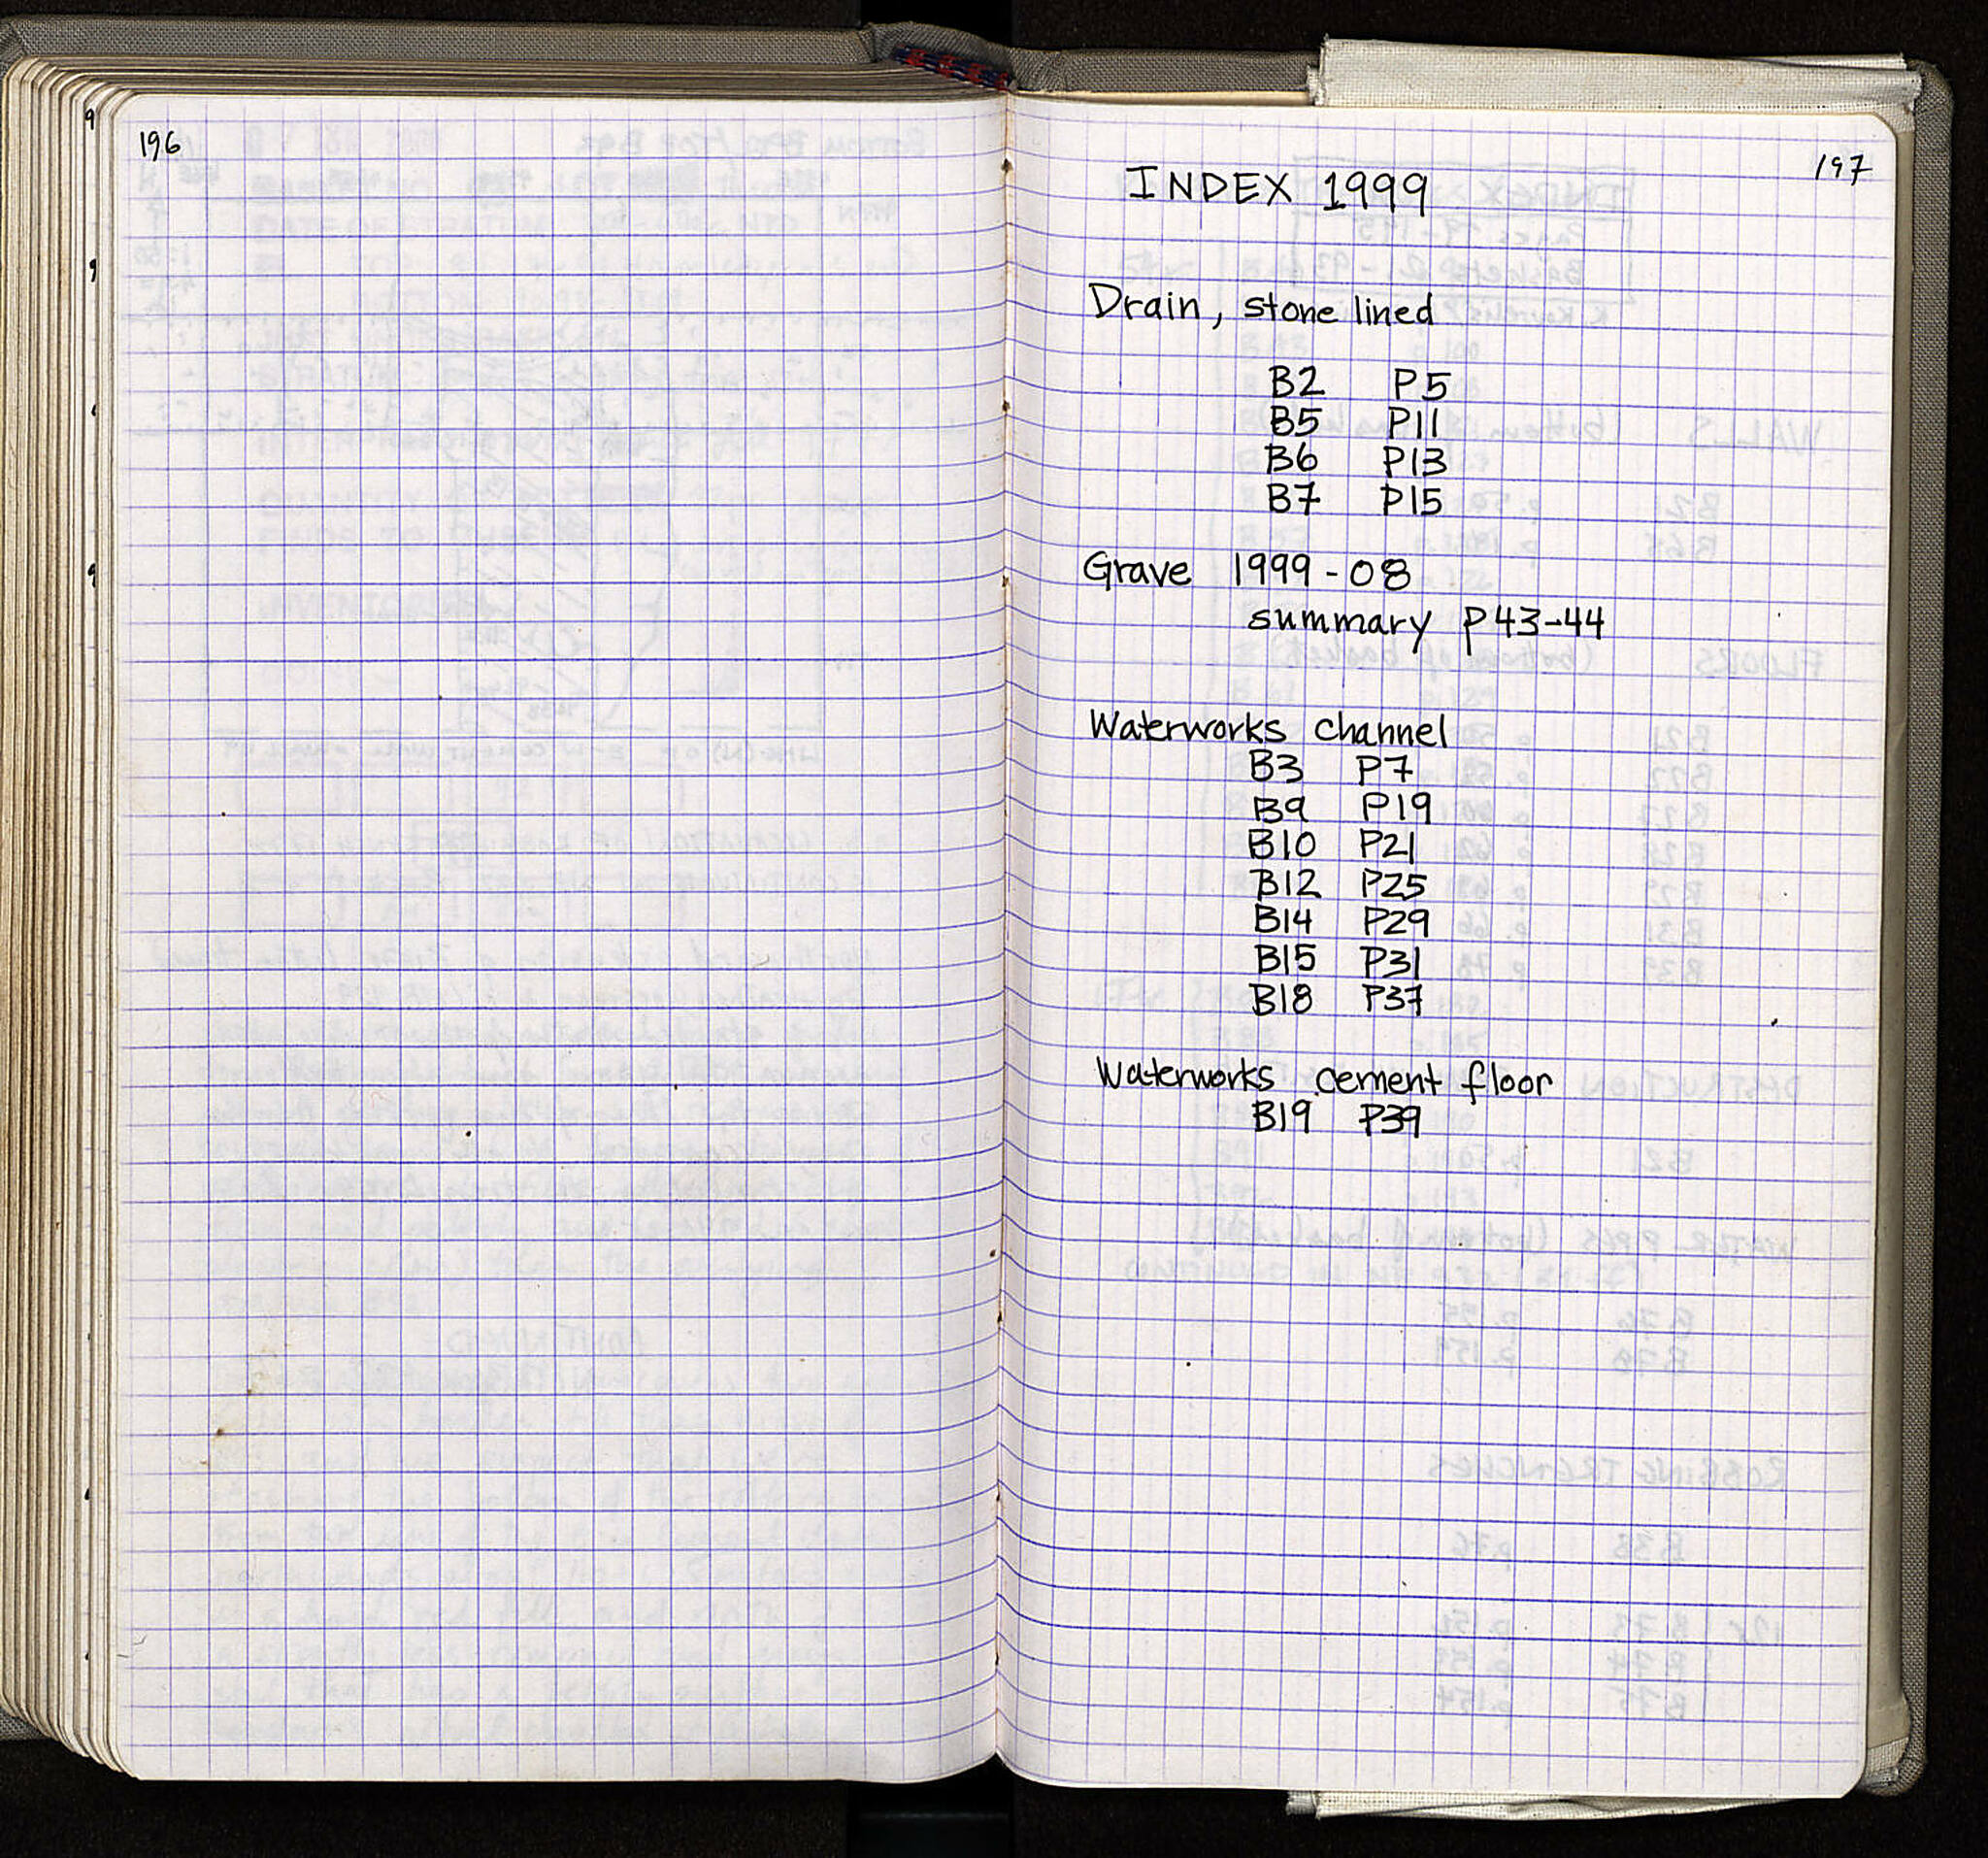 196
197
INDEX 1999
Drain, stone lined
B2 P5
B5 P11
B6 P13
B7 P15
Grave 1999-08
summary P43-44
Waterworks channel
B3 P7
B9 P19
B10 P21
B12 P25
B14 P29
B15 P31
B18 P37
Waterworks cement floor
B19 P39